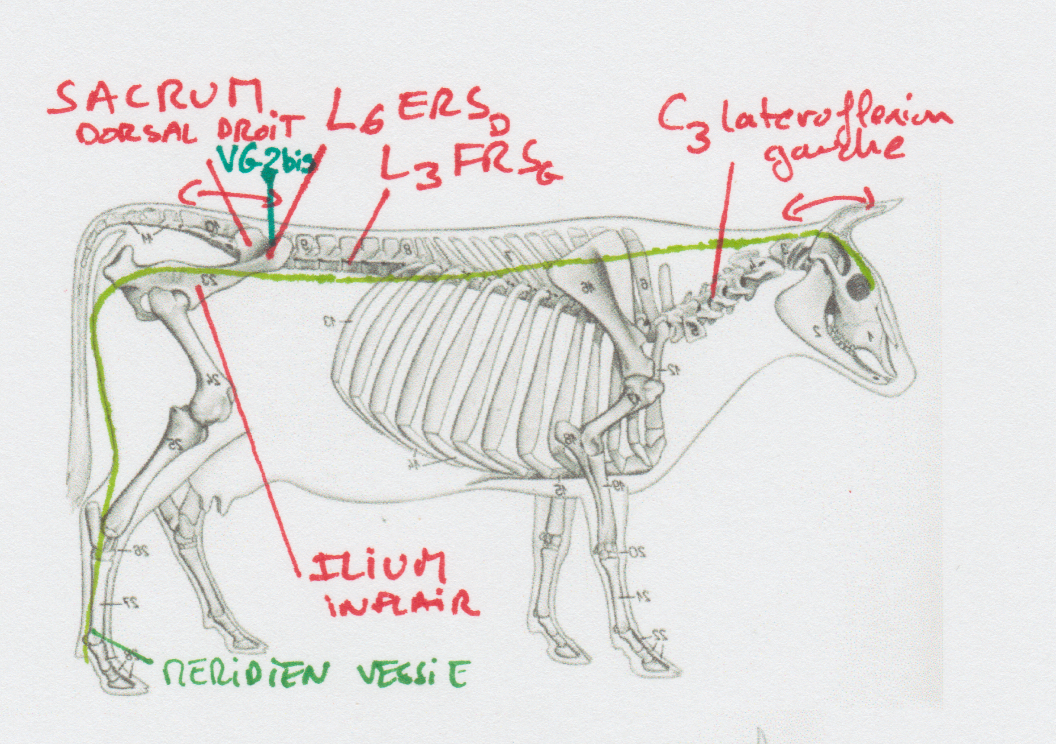 SACRUM
DORSAL DROIT
VG2bis
L6 ERSD
L3 FRSG
C3 lateroflexion
gauche
11
10
9
8
7
6
5
4
3
2
1
23
16
13
12
24
25
14
15
17
18
19
26
20
27
21
22
28
ILIUM
INFLAIR
MERIDIEN VESSIE